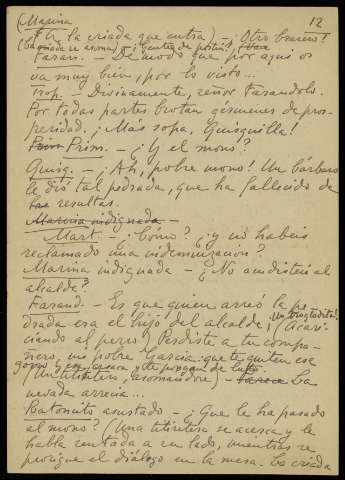 (Marina 12
(A la criada que entra) – ¡Otro brasero!
(la criada se asoma) – ¡Gentes de postín!
Faran. – De modo que por aquí os
va muy bién, por lo visto...
Trop. – Divinamente, señor Farandolo.
Por todas partes brotan gérmenes de pros-
peridad. ¡Más sopa, Quisquilla!
Prim Prim. – ¿Y el mono?
Quisq. – ¡Ah, pobre mono! Un bárbaro
le dió tal pedrada, que ha fallecido de
las resultas.
Marina indignada –
Mart. – ¿Cómo? ¿y no habéis
reclamado una indemnización?
Marina indignada – ¿No acudisteis al
alcalde?
Farand. – Es que quien arreó la pe-
drada era el hijo del alcalde. (Acari-
ciando al perro) Perdiste a tu compa-
ñero, mi pobre García: que te quiten ese
gorro y te pongan de luto.
(Un titiritero, asomándose) – La
nevada arrecia...
Batoncito asustado – ¿Que le ha pasado
al mono? (Una titiritera se acerca y le
habla sentada a un lado, mientras se
prosigue el diálogo en la mesa. La criada